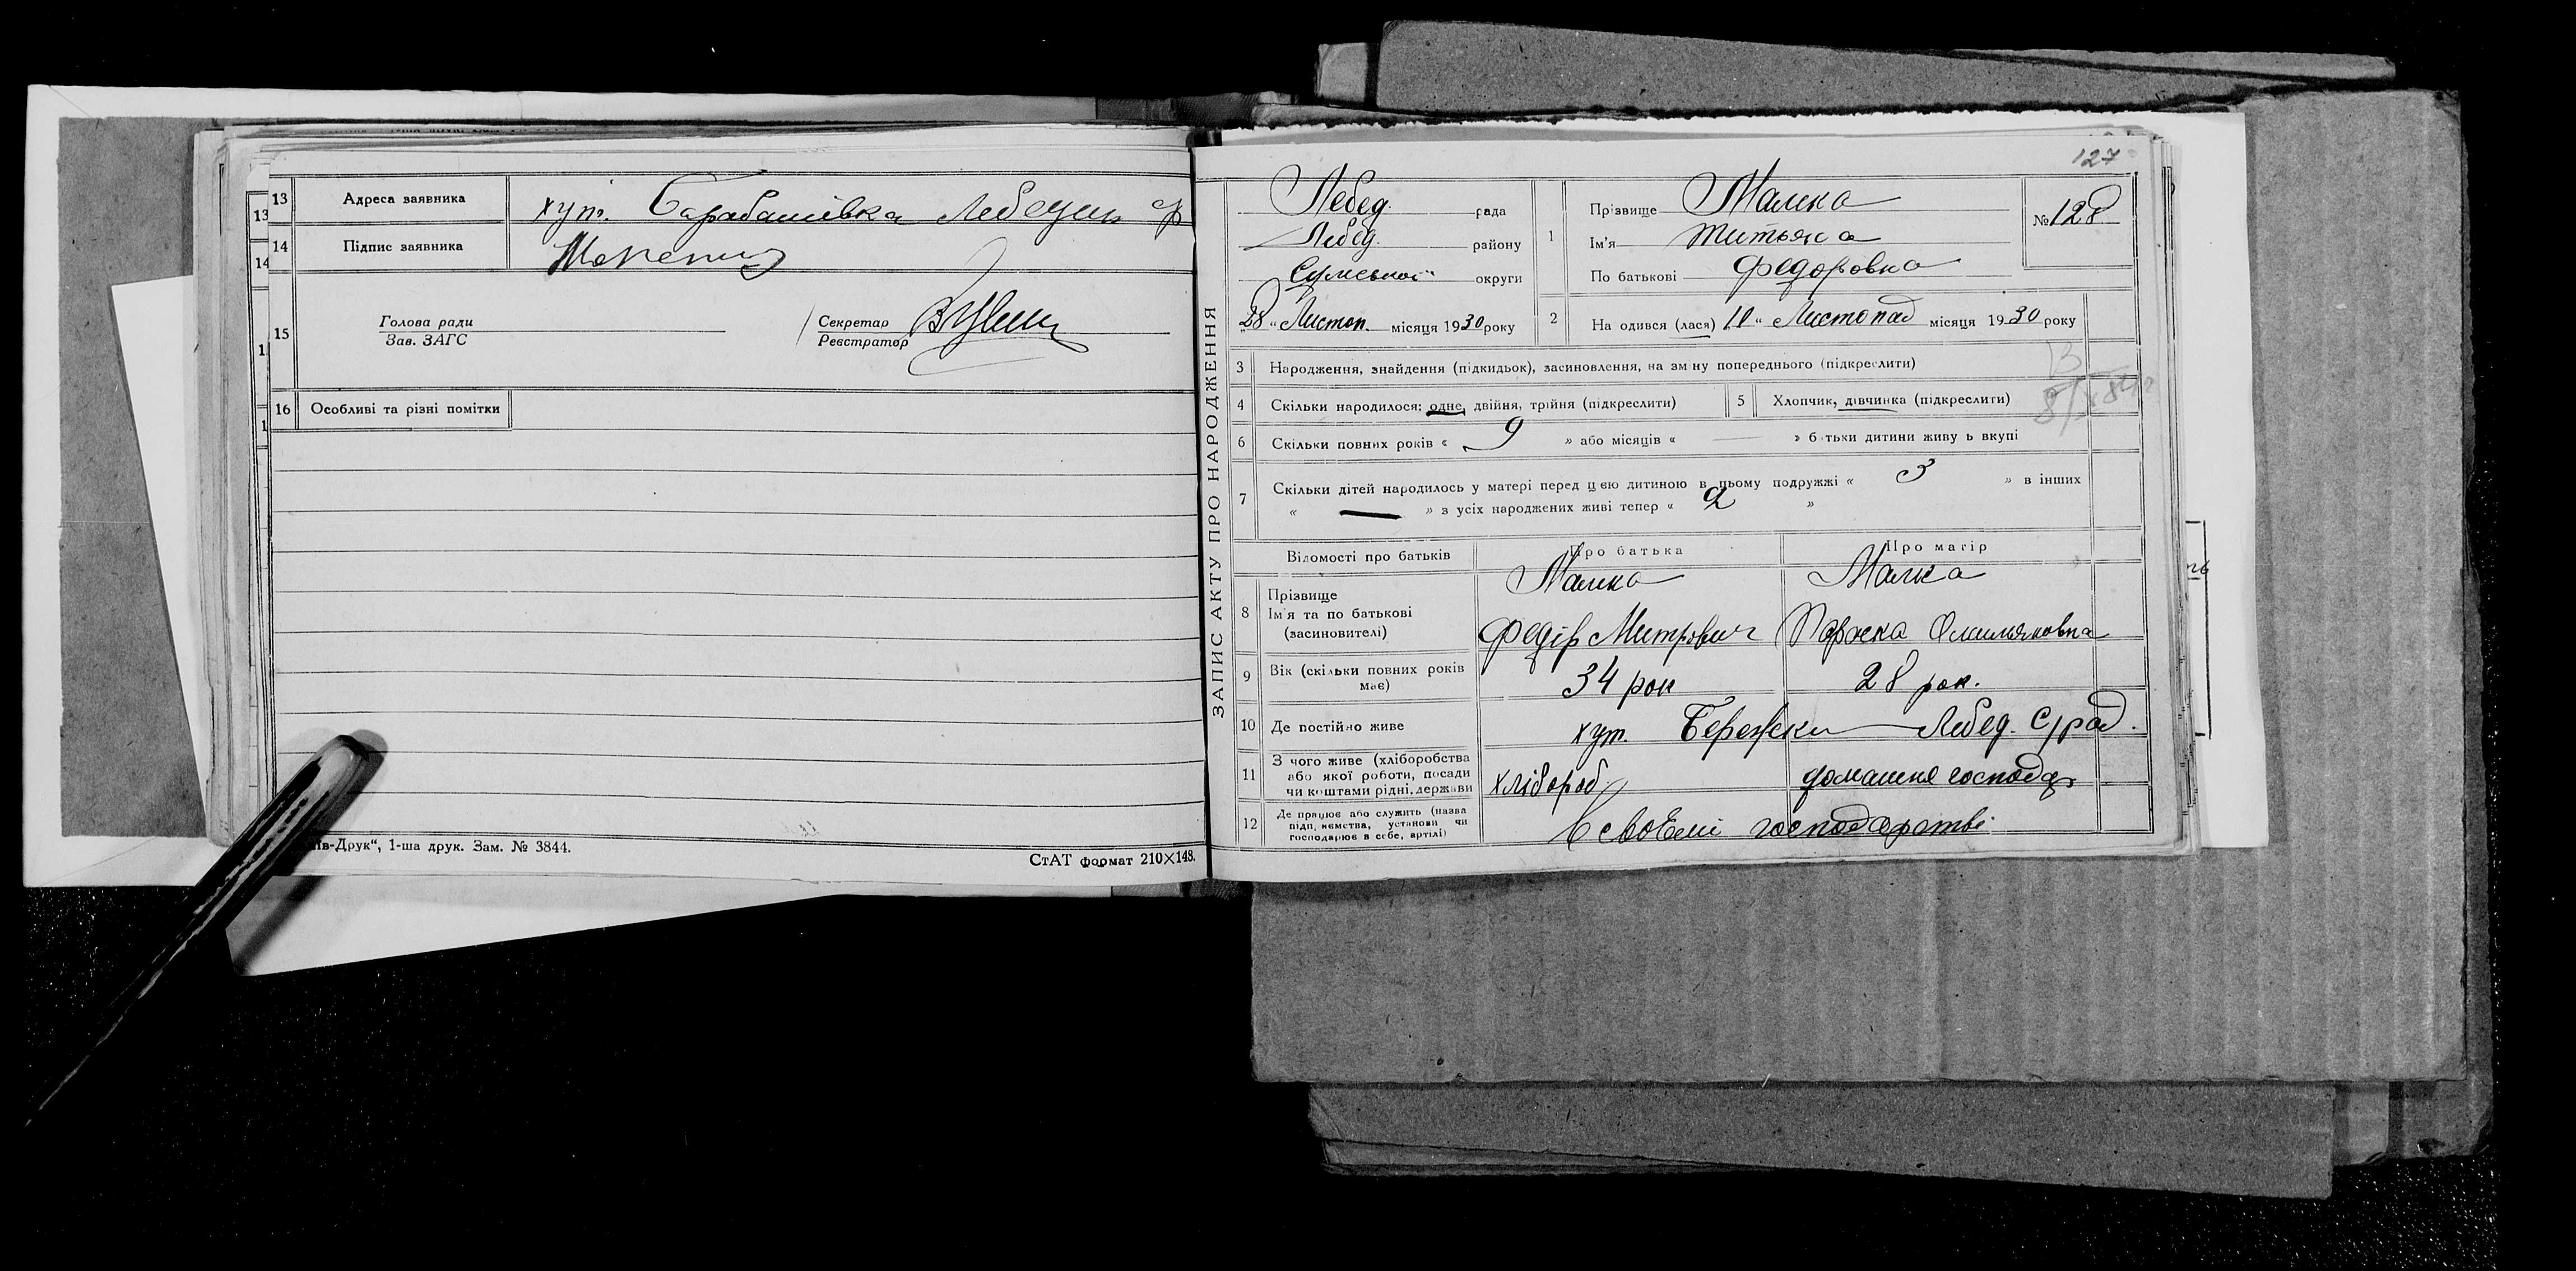 13 Адреса заявника хут. Барабашівка Лебедин
14 Підпис заявника
15 Голова ради
Зав. ЗАГС
Секретар
Реєстратор
16 Особливі та різні помітки
ів-Друк“, 1-ша друк. Зам. № 3844.
СтАТ формат 210×148.
127
ЗАПИС АКТУ ПРО НАРОДЖЕННЯ
Лебед. рада
Лебед. району
Сумської округи
28 “ Листоп. місяця 1930 року
1 Прізвище
Ім’я
По батькові Федоровна
№ 128
2 На одився (лася) 10 “ Листопад місяця 1930 року
3 Народження, знайдення (підкидьок), засиновлення, на зміну попереднього (підкреслити)
4 Скільки народилося: одне, двійня, трійня (підкреслити)
5 Хлопчик, дівчинка (підкреслити)
6 Скільки повних років « 9 » або місяців « — » б тьки дитини живу ь вкупі
7 Скільки дітей народилось у матері перед цєю дитиною в цьому подружжі « 3 » в інших
« — » з усіх народжених живі тепер « 2 »
Відомості про батьків
Про батька
Про матір
8 Прізвище
Ім’я та по батькові
(засиновителі)
Федір Митрович
Омеляновна
9 Вік (скільки повних років
має)
34 рок
28 рок.
10 Де постійно живе хут. Бережки Лебед. с/рад.
11 З чого живе (хліборобства
або якої роботи, посади
чи коштами рідні, держави
хлібороб
домашня господар
12 Де працює або служить (назва
підп, ємства, установи чи
господарює в себе, артілі)
в своємі господарстві